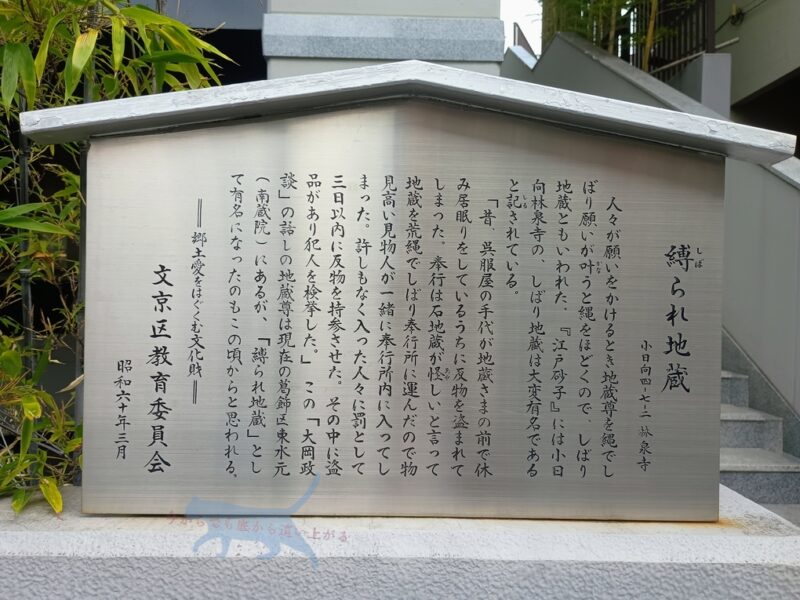 縛られ地蔵
しば
小日向四-七-二 林泉寺
人々が願いをかけるとき地蔵尊を縄でし
ばり願いが叶うと縄をほどくので、しばり
かな
地蔵ともいわれた。『江戸砂子』には小日
向林泉寺の、しばり地蔵は大変有名である
と記されている。
しる
「昔、呉服屋の手代が地蔵さまの前で休
み居眠りをしているうちに反物を盗まれて
しまった。奉行は石地蔵が怪しいと言って
あや
地蔵を荒縄でしばり奉行所に運んだので物
見高い見物人が一緒に奉行所内に入ってし
まった。許しもなく入った人々に罰として
三日以内に反物を持参させた。その中に盗
品があり犯人を検挙した。」この「大岡政
談」の話しの地蔵尊は現在の葛飾区東水元
(南蔵院)にあるが、「縛られ地蔵」とし
て有名になったのもこの頃からと思われる。
郷土愛をはぐくむ文化財
文京区教育委員会
昭和六十年三月